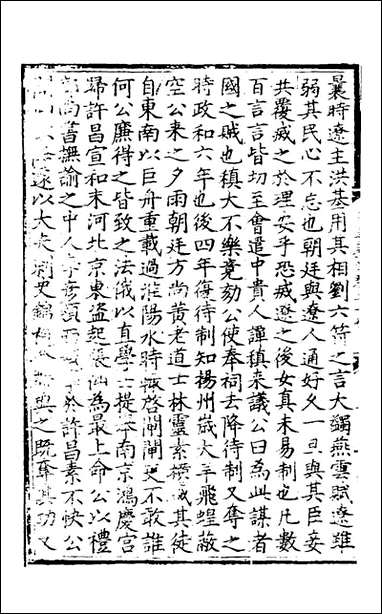 曩時遼主洪基用其相劉六符之言大蠲燕雲賦遼雖
弱其民心不忘也朝廷與遼人通好久一旦與其臣妾
共覆滅之於理安乎恐滅遼之後女真未易制也凡數
百言言皆切至會遣中貴人譚稹來議公曰為此謀者
國之賊也稹大不樂竟劾公使奉祠去降待制又奪之
時政和六年也後四年復待制知揚州歲大旱飛蝗蔽
空公來之夕雨朝廷方尚黃老道士林靈素 其徒
自東南以巨舟重載過淮陽水時輒啓閘閘吏不敢誰
何公廉得之皆致之法俄以直學士提舉南京鴻慶宮
歸許昌宣和末河北京東盜起張 為最上命公以禮
尚書撫諭之中人 於許昌素不快公
遂以大夫 史錦 與之既奪其功又